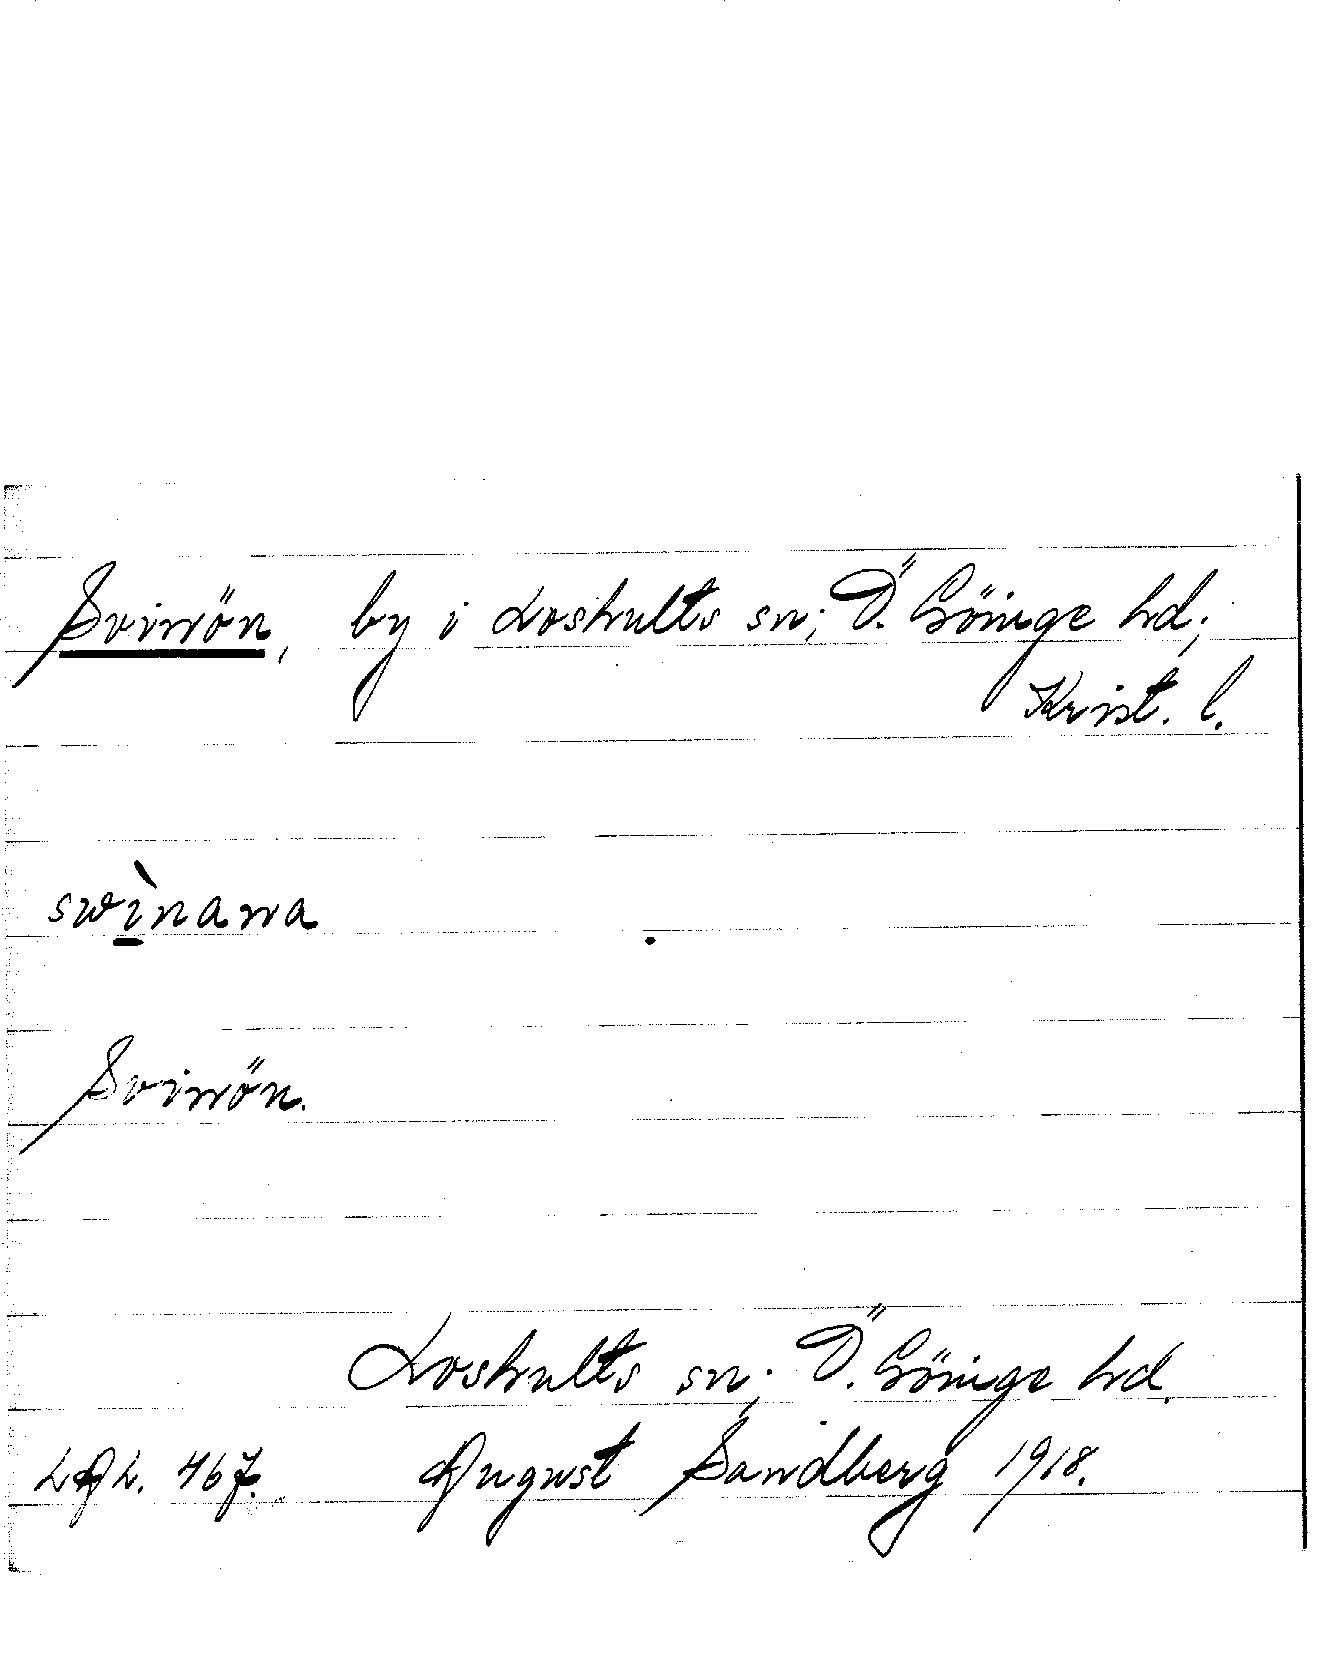 Svinön, by i Loshults sn; Ö. Göinge hd;
Krist. l.
swìnana
Svinön.
Loshults sn; Ö. Göinge hd.
LAL. 467. August Sandberg 1918.